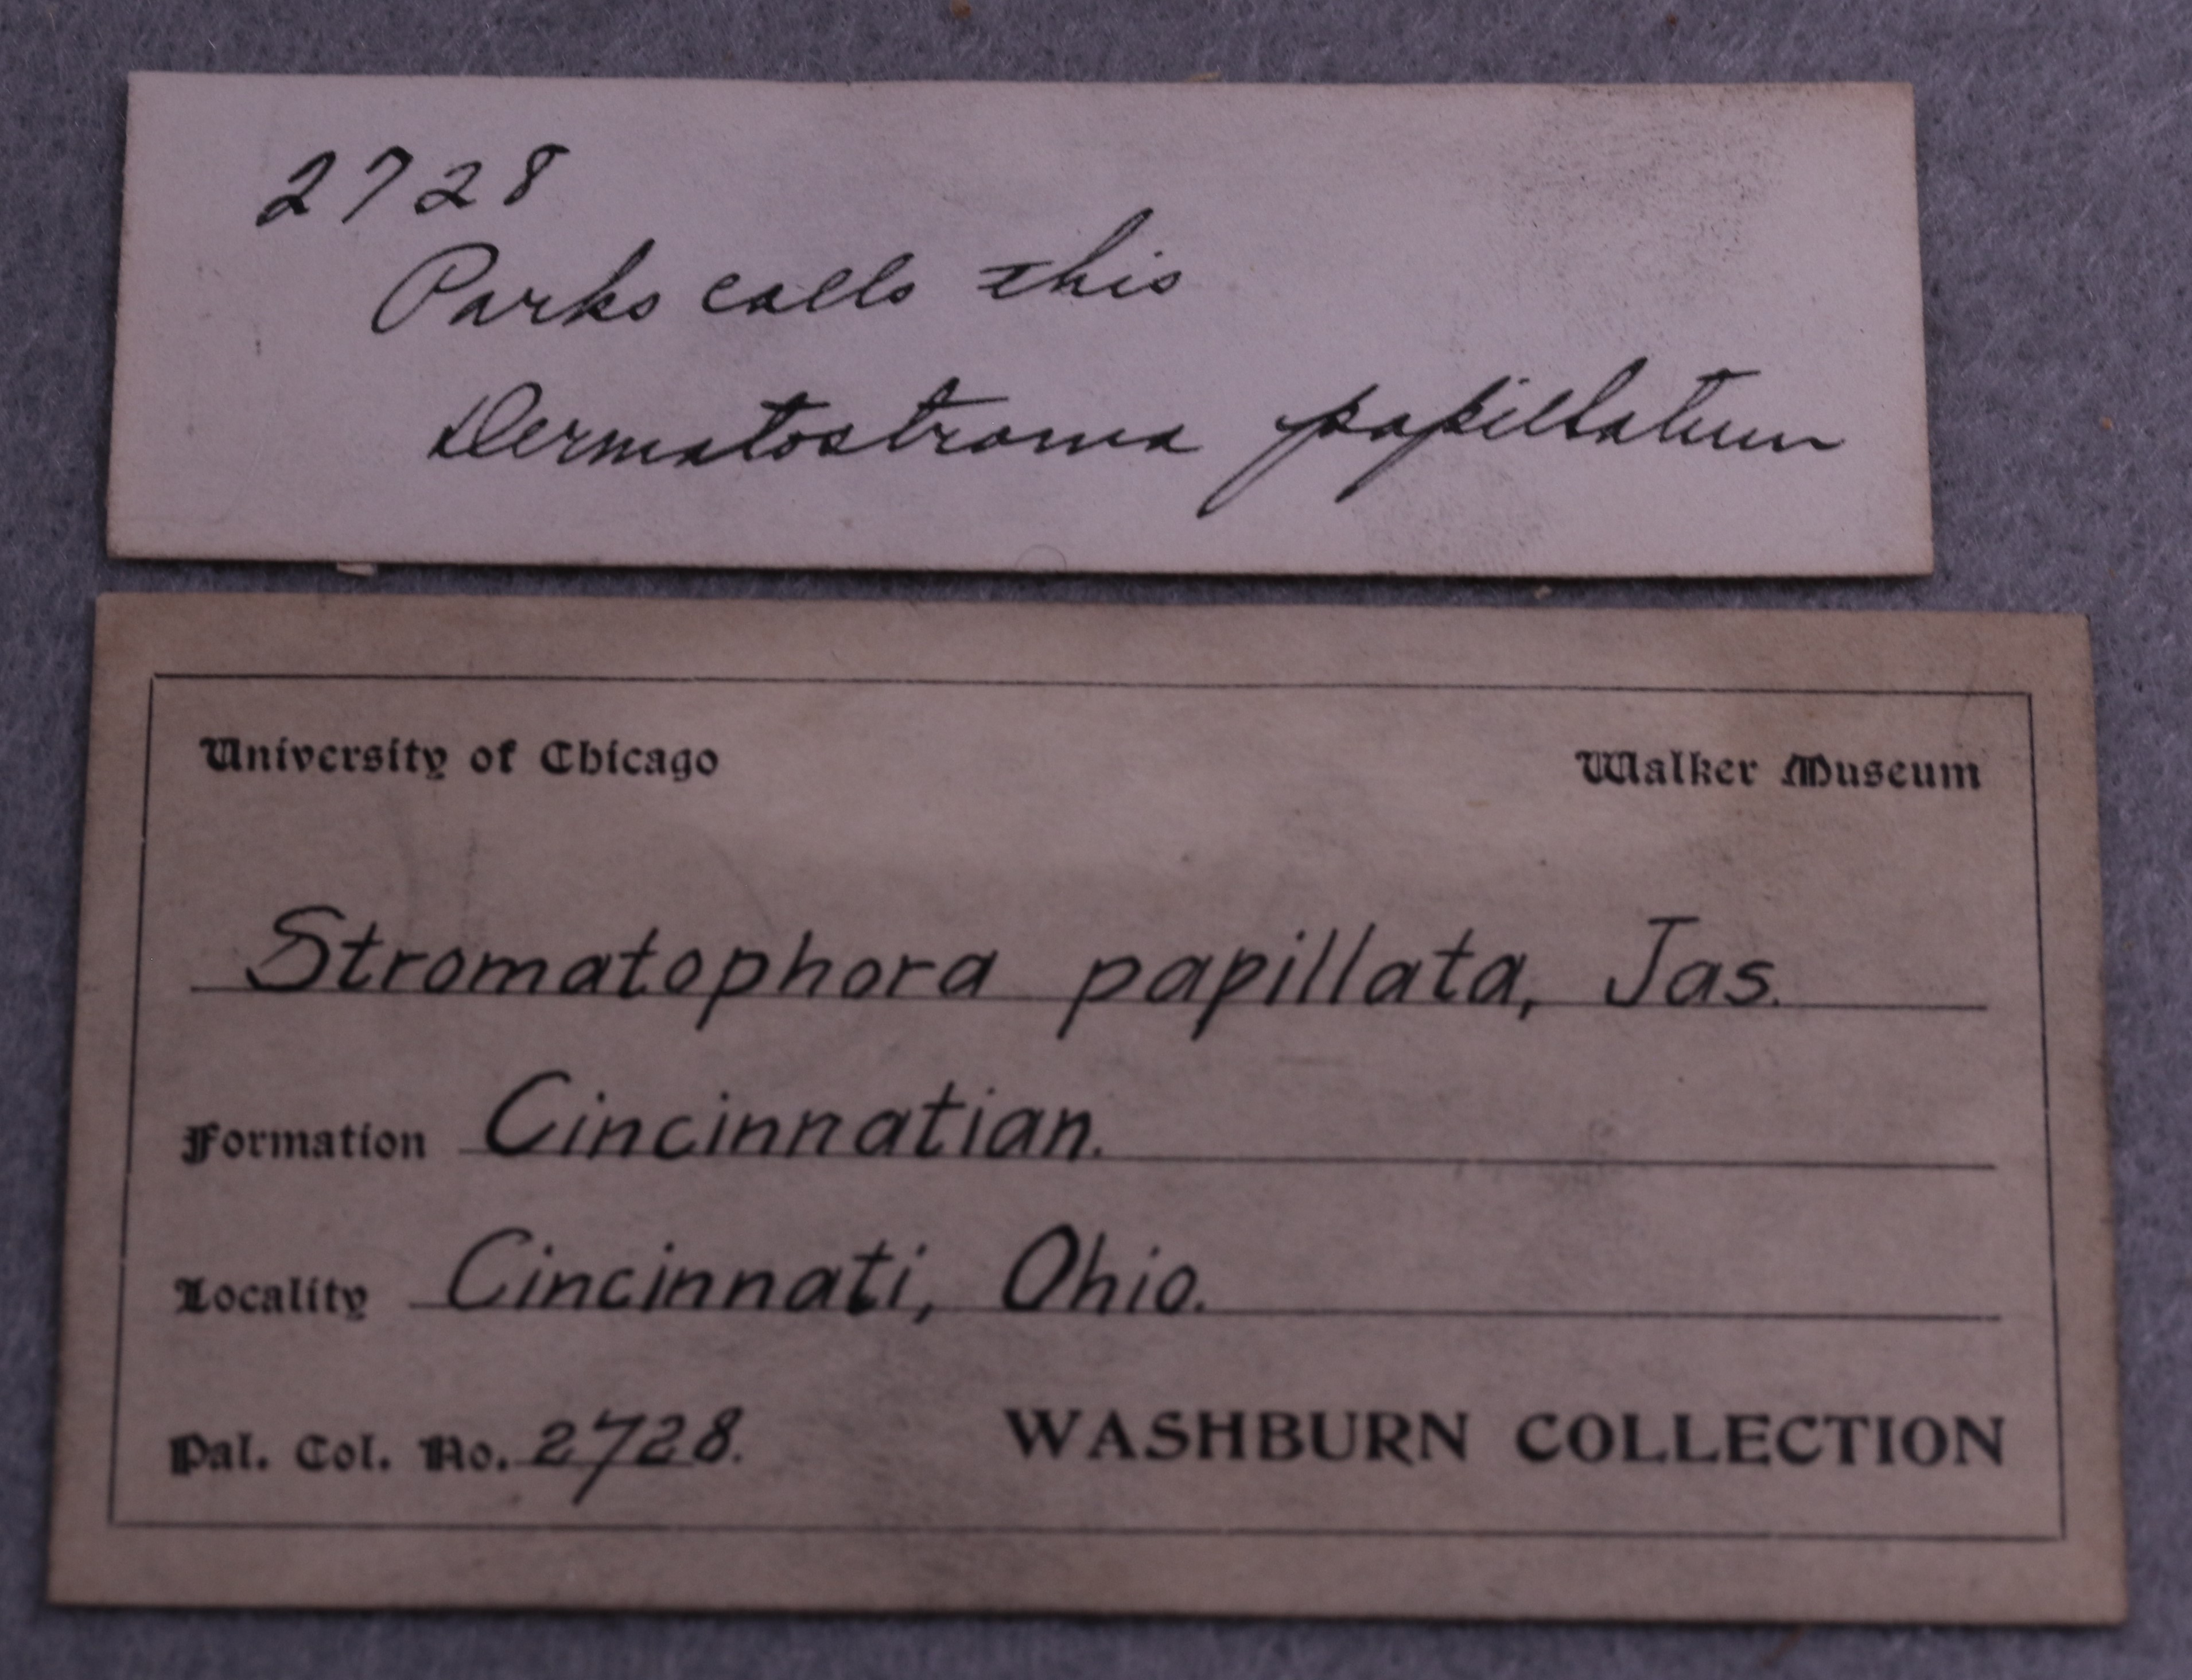 2728
Parks calls this
Dermatostroma papillatum
University of Chicago Walker Museum
Stromatophora papillata, Jas.
Formation Cincinnatian.
Locality Cincinnati, Ohio.
Pal. Col. No. 2728. WASHBURN COLLECTION